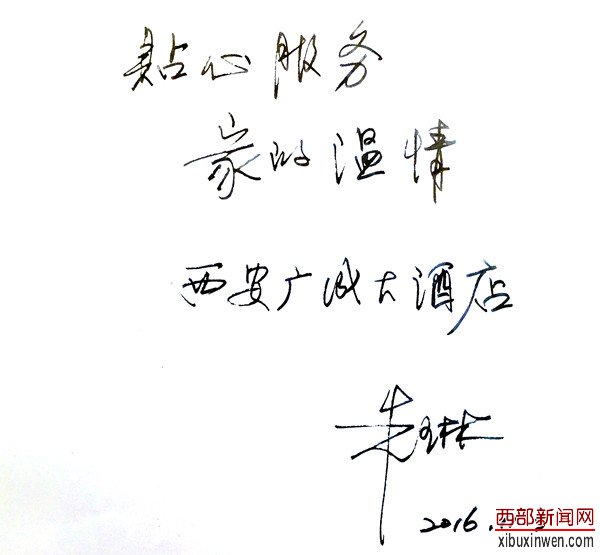 贴心服务
家的温情
西安广成大酒店
朱琳
2016.
西部新闻网
xibuxinwen.com